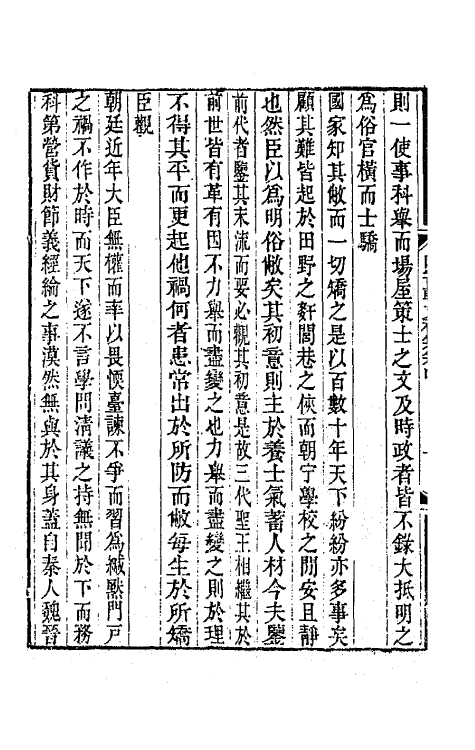 則一使事科舉而場屋策士之文及時政者皆不錄大抵明之
為俗官橫而士驕
國家知其敝而一切矯之是以百數十年天下紛紛亦多事矣
顧其難皆起於田野之姧閭巷之俠而朝宁學校之間安且靜
也然臣以為明俗敝矣其初意則主於養士氣蓄人材今夫鑒
前代者鑒其末流而要必觀其初意是故三代聖王相繼其於
前世皆有革有因不力舉而盡變之也力舉而盡變之則於理
不得其平而更起他禍何者患常出於所防而敝每生於所矯
臣觀
朝廷近年大臣無權而率以畏愞臺諫不爭而習為緘默門戸
之禍不作於時而天下遂不言學問清議之持無聞於下而務
科第營貨財節義經綸之事漠然無與於其身蓋自秦人魏晉